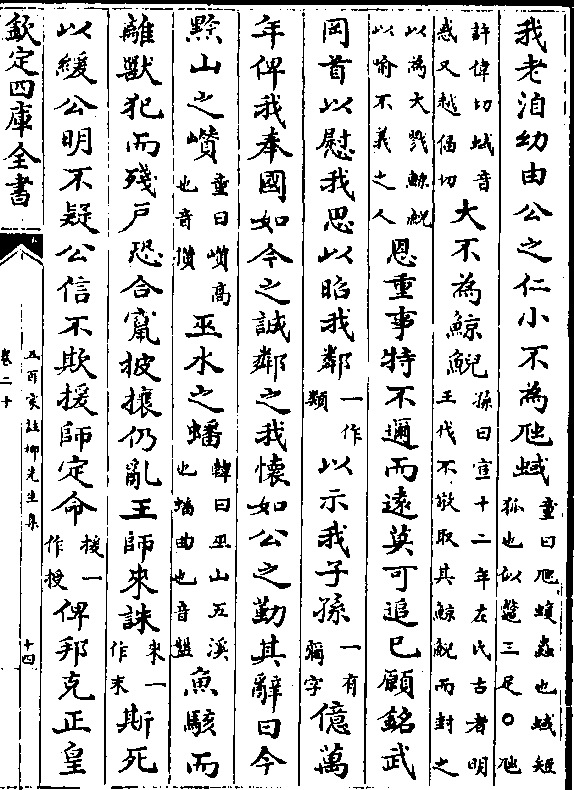 我老洎幼由公之仁小不為虺蜮童曰虺蝮蟲也蜮短狐也似鼈三足○虺
許偉切蜮音惑又越偪切大不為鯨鯢孫曰宣十二年左氏古者明王伐不敬取其鯨鯢而封之
以為大戮鯨鯢以喻不義之人恩重事特不邇而遠莫可追已顧銘武
岡首以慰我思以昭我鄰一作類以示我子孫一有彌字億萬
年俾我奉國如今之誠鄰之我懷如公之勤其辭曰今
黔山之巑童曰巑高也音攢巫水之蟠韓曰巫山五溪也蟠曲也音盤魚駭而
離獸犯而殘戶恐合竄披攘仍亂王師來誅來一作末斯死
以緩公明不疑公信不欺援師定命援一作授俾邦克正皇
欽定四庫全書
五百家註柳先生集
卷二十
十四